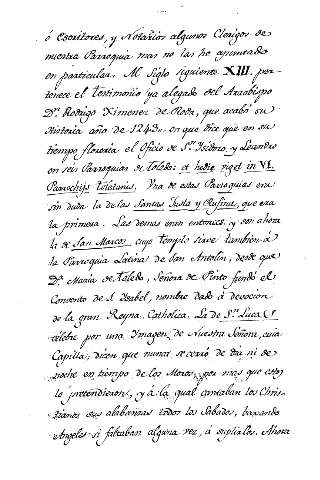 ó Escritores, y Notarios algunos Clerigos de
nuestra Parroquia mas no las he apuntado
en particular. Al Siglo siguiente XIII. per-
tenece el testimonio ya alegado del Arzobispo
Dn. Rodrigo Ximenez de Rada, que acabó su
Historia año de 1243. en que dice que en su
tiempo florecia el Oficio de Sn. Isidoro, y Leandro
en seis Parroquias de Toledo: et hodie viget in VI.
Parrochijs Toletanis. Una de estas Parroquias era
sin duda la de las Santas Justa y Rufina, que era
la primera. Las demas eran entonces, y son ahora
la de San Marcos, cuyo templo sirve tambien á
la Parroquia Latina de San Antolin, desde que
Da. Maria de Toledo, Señora de Pinto fundó el
Convento de S. Isabel, nombre dado á devocion
de la gran Reyna Catholica. La de Sn. Lucas
celebre por una Imagen de Nuestra Señora, cuia
Capilla, dicen que nunca se cerró de dia ni de
noche en tiempo de los Moros, por mas que estos
lo pretendieron, y á la qual cantaban los Chris-
tianos sus alabanzas todos los Sabados, baxando
Angeles si faltaban alguna vez, á suplirlos. Ahora